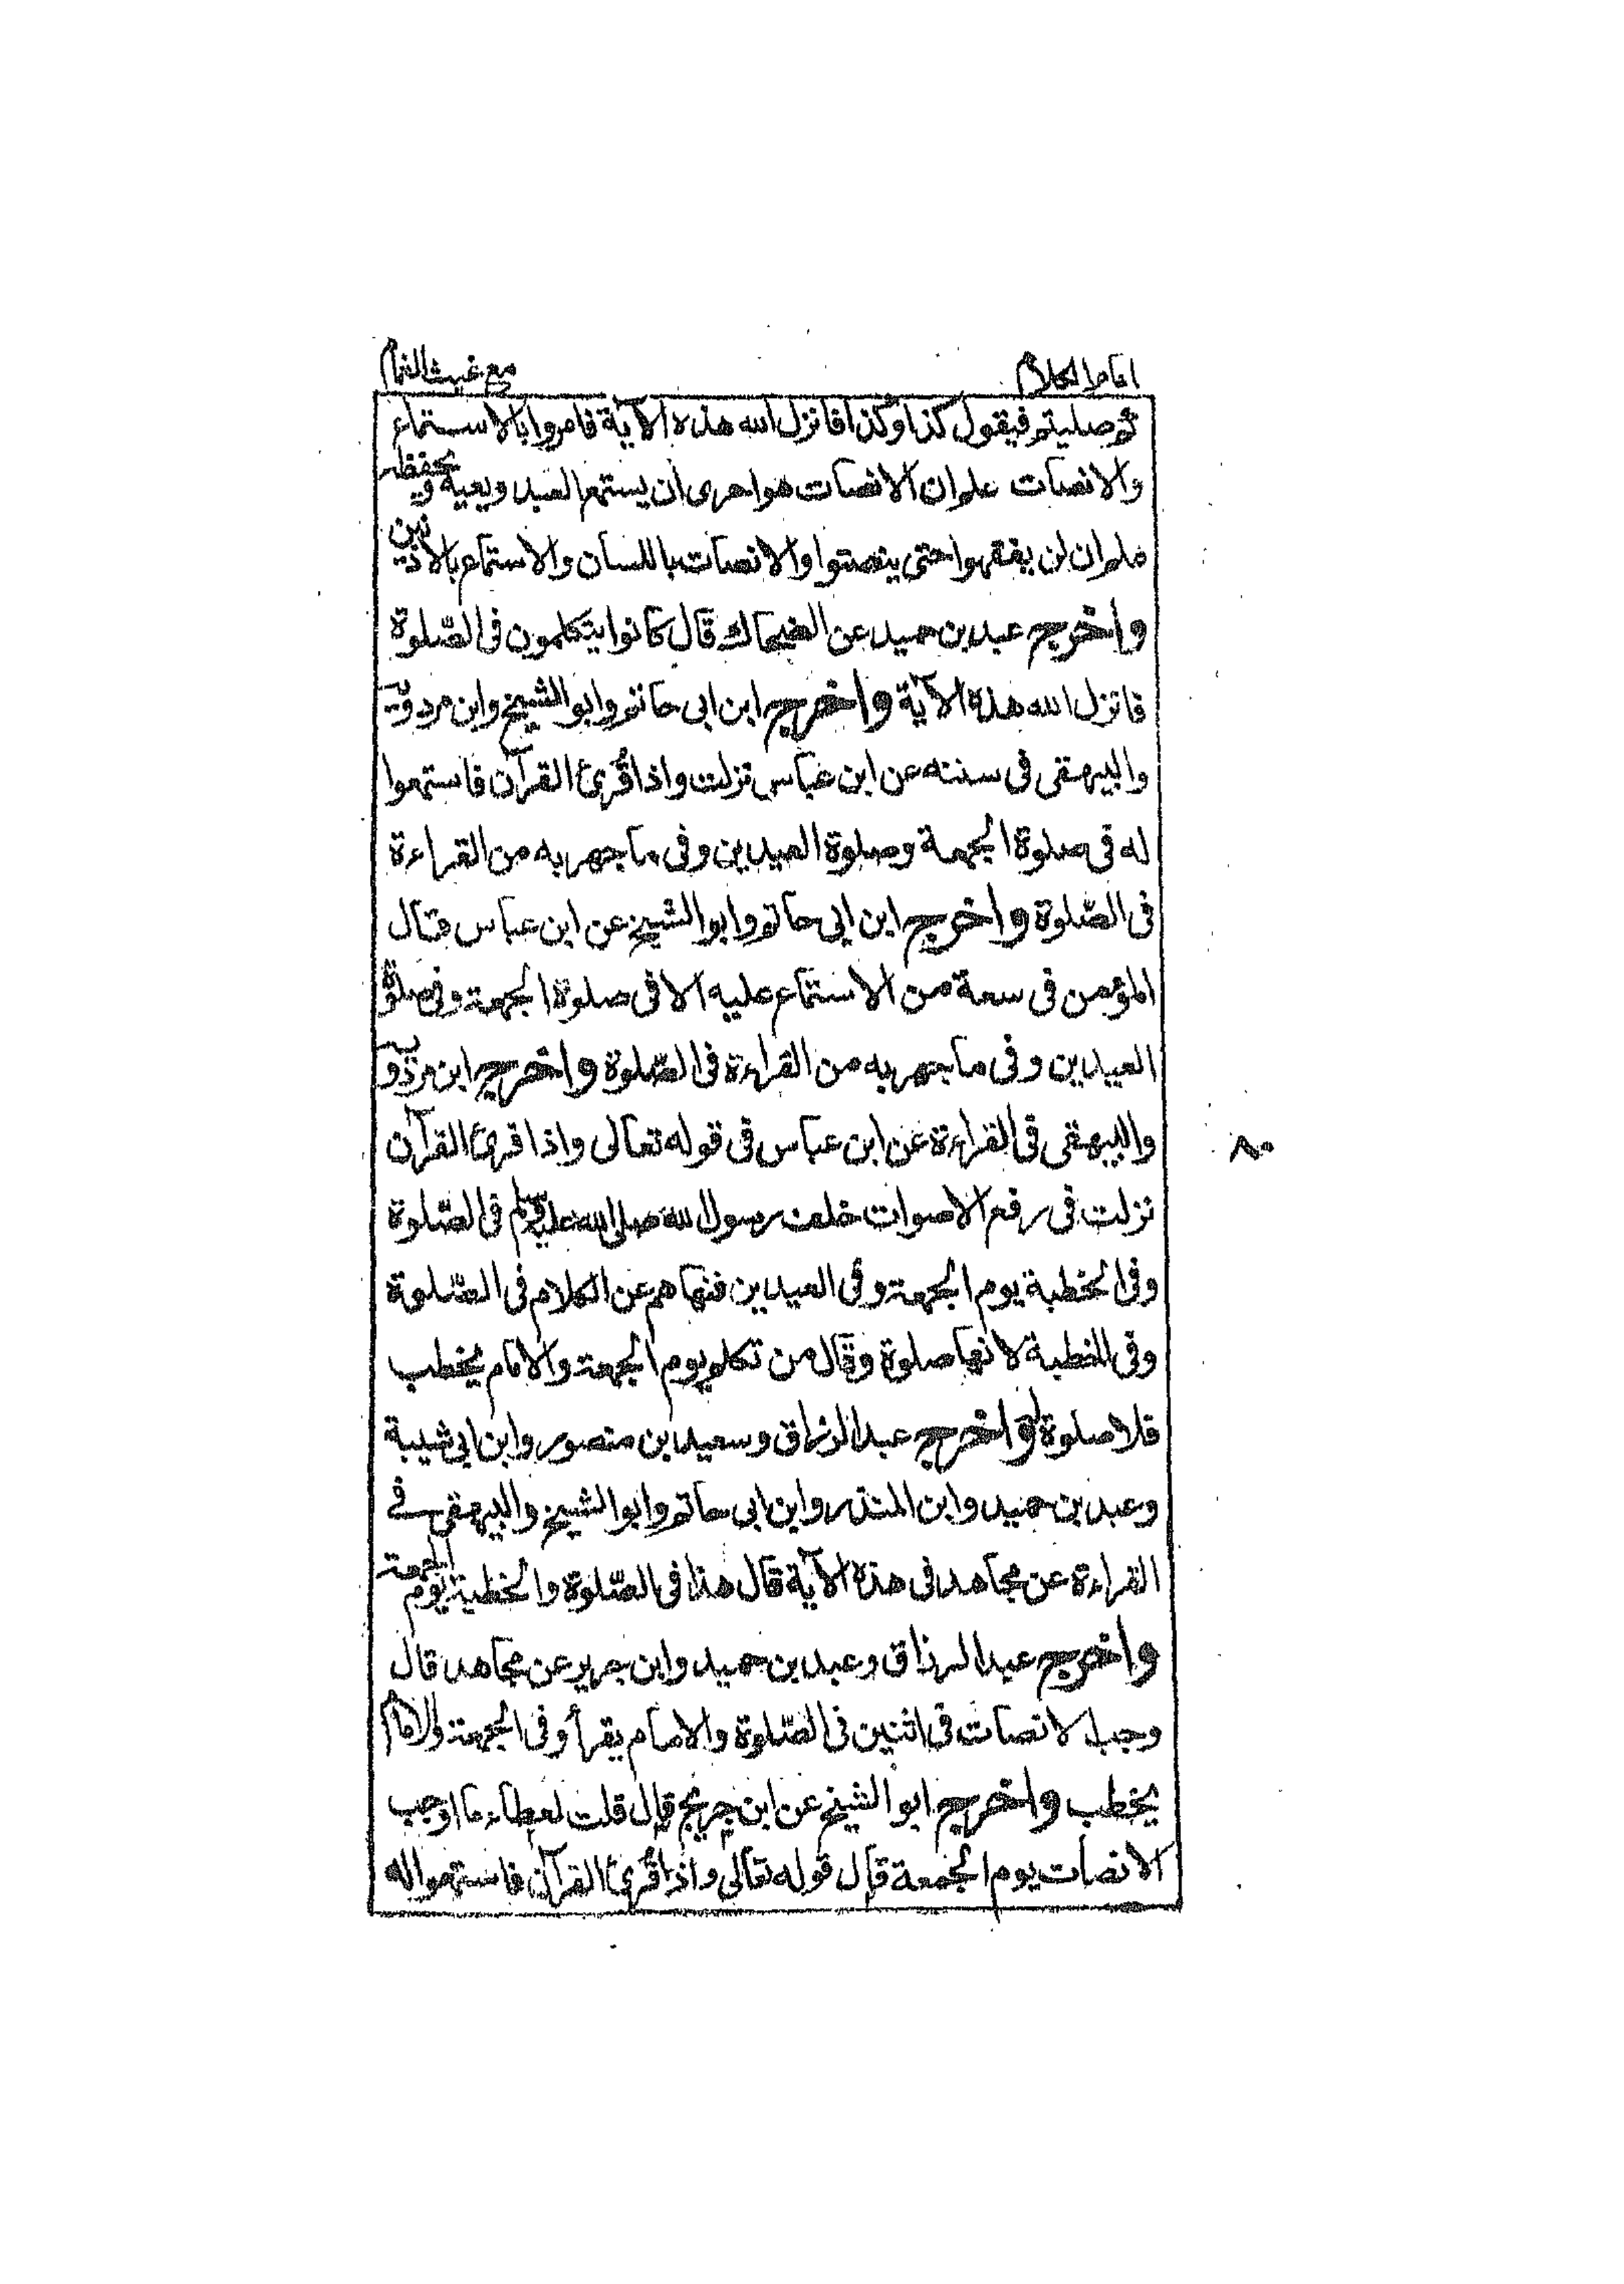 امام الكلام
مع غيث الغمام
كم صليتم فيقول كذا وكذا فانزل الله هذه الآية فامروا بالاستماع
والانصات علم ان الانصات هو احرى ان يستمع العبد ويعيه ويحفظه
علم ان لن يفقهوا حتى ينصتوا والانصات باللسان والاستماع بالاذنين
واخرج عبد بن حميد عن الضحاك قال كانوا يتكلمون فى الصّلوة
فانزل الله هذه الآية واخرج ابن ابى حاتم وابو الشيخ وابن مردويه
والبيهقى فى سننه عن ابن عباس نزلت واذا قُرئ القرآن فاستمعوا
له فى صلوة الجمعة وصلوة العيدين وفى ما جهر به من القراءة
فى الصّلوة واخرج ابن ابى حاتم وابو الشيخ عن ابن عباس قال
المؤمن فى سعة من الاستماع عليه الا فى صلوة الجمعة وفى صلوة
العيدين وفى ما جهر به من القراءة فى الصّلوة واخرج ابن مردويه
والبيهقى فى القراءة عن ابن عباس فى قوله تعالى واذا قرئ القرآن
نزلت فى رفع الاصوات خلف رسول الله صلى الله عليه وسلم فى الصّلوة
وفى الخطبة يوم الجمعة وفى العيدين فنهاهم عن الكلام فى الصّلوة
وفى الخطبة لانها صلوة وقال من تكلم يوم الجمعة والامام يخطب
فلا صلوة له واخرج عبد الرزاق وسعيد بن منصور وابن ابى شيبة
وعبد بن حميد وابن المنذر وابن ابى حاتم وابو الشيخ والبيهقى فے
القراءة عن مجاهد فى هذه الآية قال هذا فى الصّلوة والخطبة يوم الجمعة
واخرج عبد الرزاق وعبد بن حميد وابن جرير عن مجاهد قال
وجب الانصات فى اثنين فى الصّلوة والامام يقرأ وفى الجمعة والامام
يخطب واخرج ابو الشيخ عن ابن جريج قال قلت لعطاء ما اوجب
الانصات يوم الجمعة قال قوله تعالى واذا قُرئ القرآن فاستمعوا له
٨٠